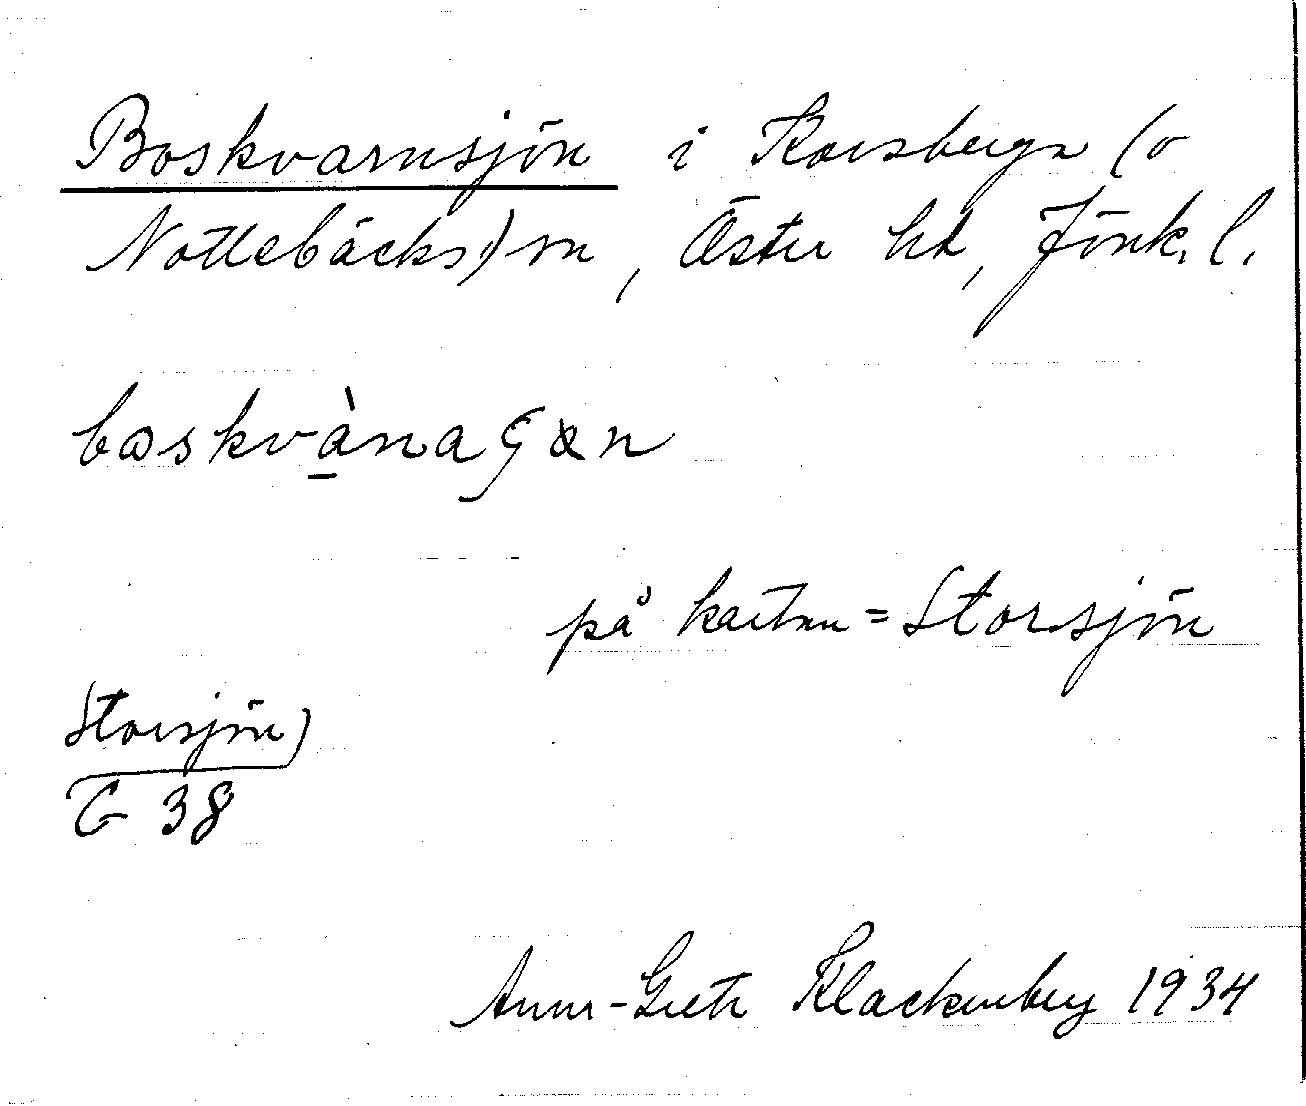 Boskvarnsjön i Korsberga (o
Nottebäcks) sn, Östra hd, Jönk. l.
på kartan = Storsjön
Storsjön)
G 38
Anna-Greta Klackenberg 1934